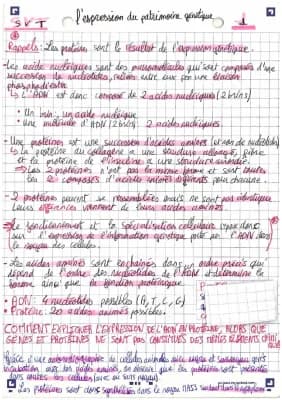 SVT
l'expression du patrimoine génétique
1
Rappels : Les protéines sont le résultat de l'expression génétique.
• Les acides nucléiques sont des macromolécules qui sont composés d'une
succession de nucléotides, reliés entre eux par une liaison
phosphodiester
↳ L'ADN est donc composé de 2 acides nucléiques (2 brins)
• Un brin, un acide nucléique
• Une molécule d'ADN (2 brins) 2 acides nucléiques
• Une protéine est une succession d'acides aminés (et non de nucléotides)
↳ la protéine du collagène a une structure allongée, fibre
et la protéine de l'insuline a une structure
⇒ Les 2 protéines n'ont pas la même forme et sont toutes
les 2 composées d'acides aminés différents pour chacune.
• 2 protéines peuvent se ressembler mais ne sont pas identiques
Leurs différences viennent de leurs acides aminés
• Le fonctionnement et la spécialisation cellulaire repose donc
sur l'expression de l'information génétique portée par l'ADN dans
le noyau des cellules.
• Les acides aminés sont enchaînés dans un ordre précis qui
dépend de l'ordre des nucléotides de l'ADN et détermine la
forme ainsi que la fonction protéique
• ADN : 4 nucléotides possibles (A, T, C, G)
• Protéine : 20 acides aminés possibles.
COMMENT EXPLIQUER L'EXPRESSION DE L'ADN EN PROTÉINE, ALORS QUE
GÈNES ET PROTÉINES NE SONT PAS CONSTITUÉS DES MÊMES ÉLÉMENTS CHIMIQUES
Grâce à une autoradiographie de cellules animales
incubation avec les acides aminés, on observe que les protéines sont présentes
dans toutes les cellules (avec ou sans noyau)
Les protéines sont donc synthétisées dans le noyau MAIS surtout dans le cytoplasme